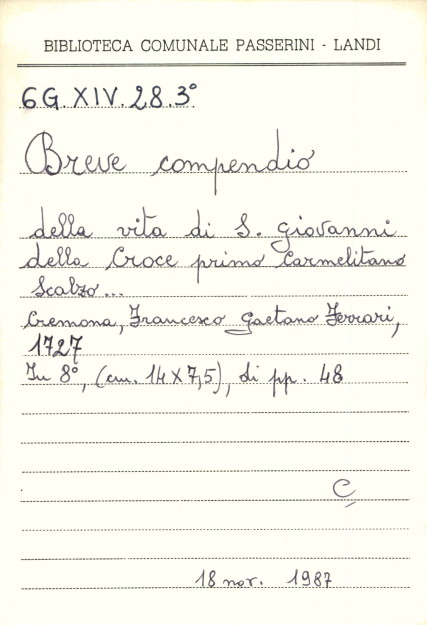 BIBLIOTECA COMUNALE PASSERINI - LANDI
6G.XIV.28.3°
Breve compendio
della vita di S. Giovanni
della Croce primo Carmelitano
Scalzo...
Cremona, Francesco Gaetano Ferrari,
1727
In 8°, (cm. 14X7,5), di pp. 48
C
18 nov. 1987